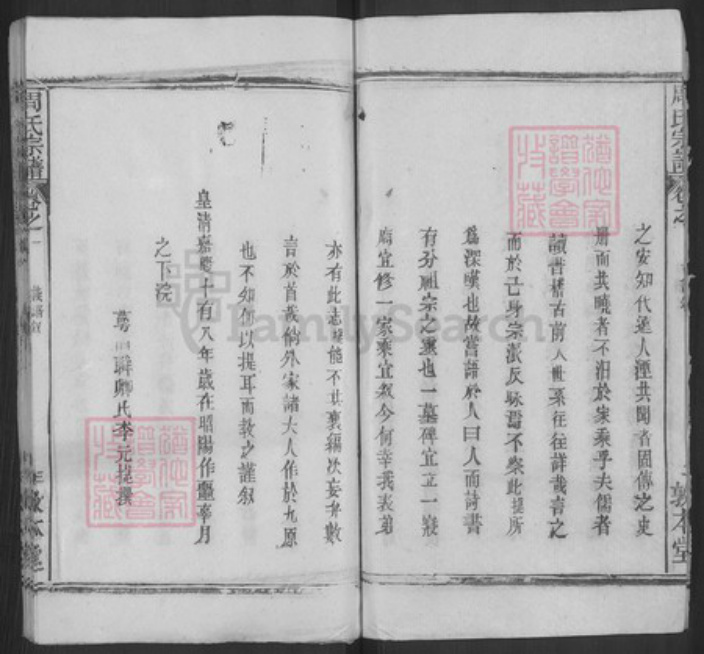 周氏宗譜
卷之
敦本堂
之安知代遠人湮共聞者固傳之史
冊而共曉者不泪於家乘乎夫儒者
讀書稽古前人世系往往詳哉言之
而於己身宗派反昧焉不察此提所
爲深嘆也故嘗語於人曰人而詩書
有分祖宗之靈也一墓碑宜立一寢
廟宜修一家乘宜叙今何幸我表弟
亦有此志提能不共襄編次妄弁數
言於首哉倘外家諸大人作於九原
也不知何以提耳而教之謹叙
皇清嘉慶十有八年歲在昭陽作噩辜月
之下浣
聯卿氏李元提撰
周氏宗譜
卷之一
敦本堂
譜學會
家
藏
FamilySearch